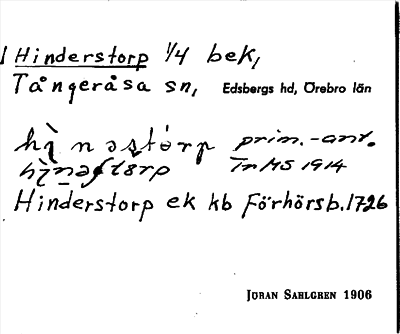 Hinderstorp 1/4 bek,
Tångeråsa sn, Edsbergs hd, Örebro län
prim.-ant.
TnHS 1914
Hinderstorp ek kb Förhörsb. 1726
JÖRAN SAHLGREN 1906